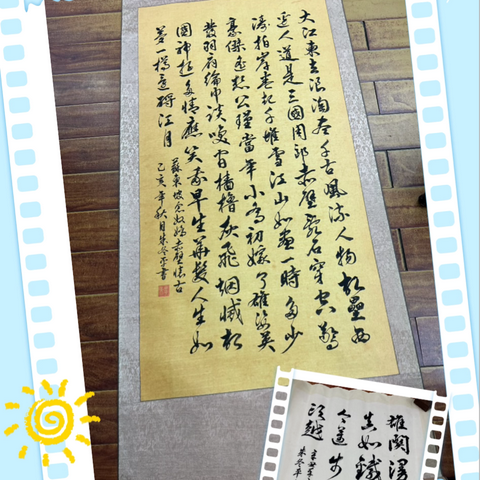 大江東去浪淘盡千古風流人物故壘西
邊人道是三國周郎赤壁亂石穿空驚
濤拍岸卷起千堆雪江山如畫一時多少
豪傑遙想公瑾當年小喬初嫁了雄姿英
發羽扇綸巾談笑間檣櫓灰飛烟滅故
國神遊多情應笑我早生華髮人生如
夢一樽還酹江月
蘇東坡念奴嬌赤壁懷古
己亥年秋月朱冬平書
雄關漫
真如鐵
今邁步
頭越
朱冬平